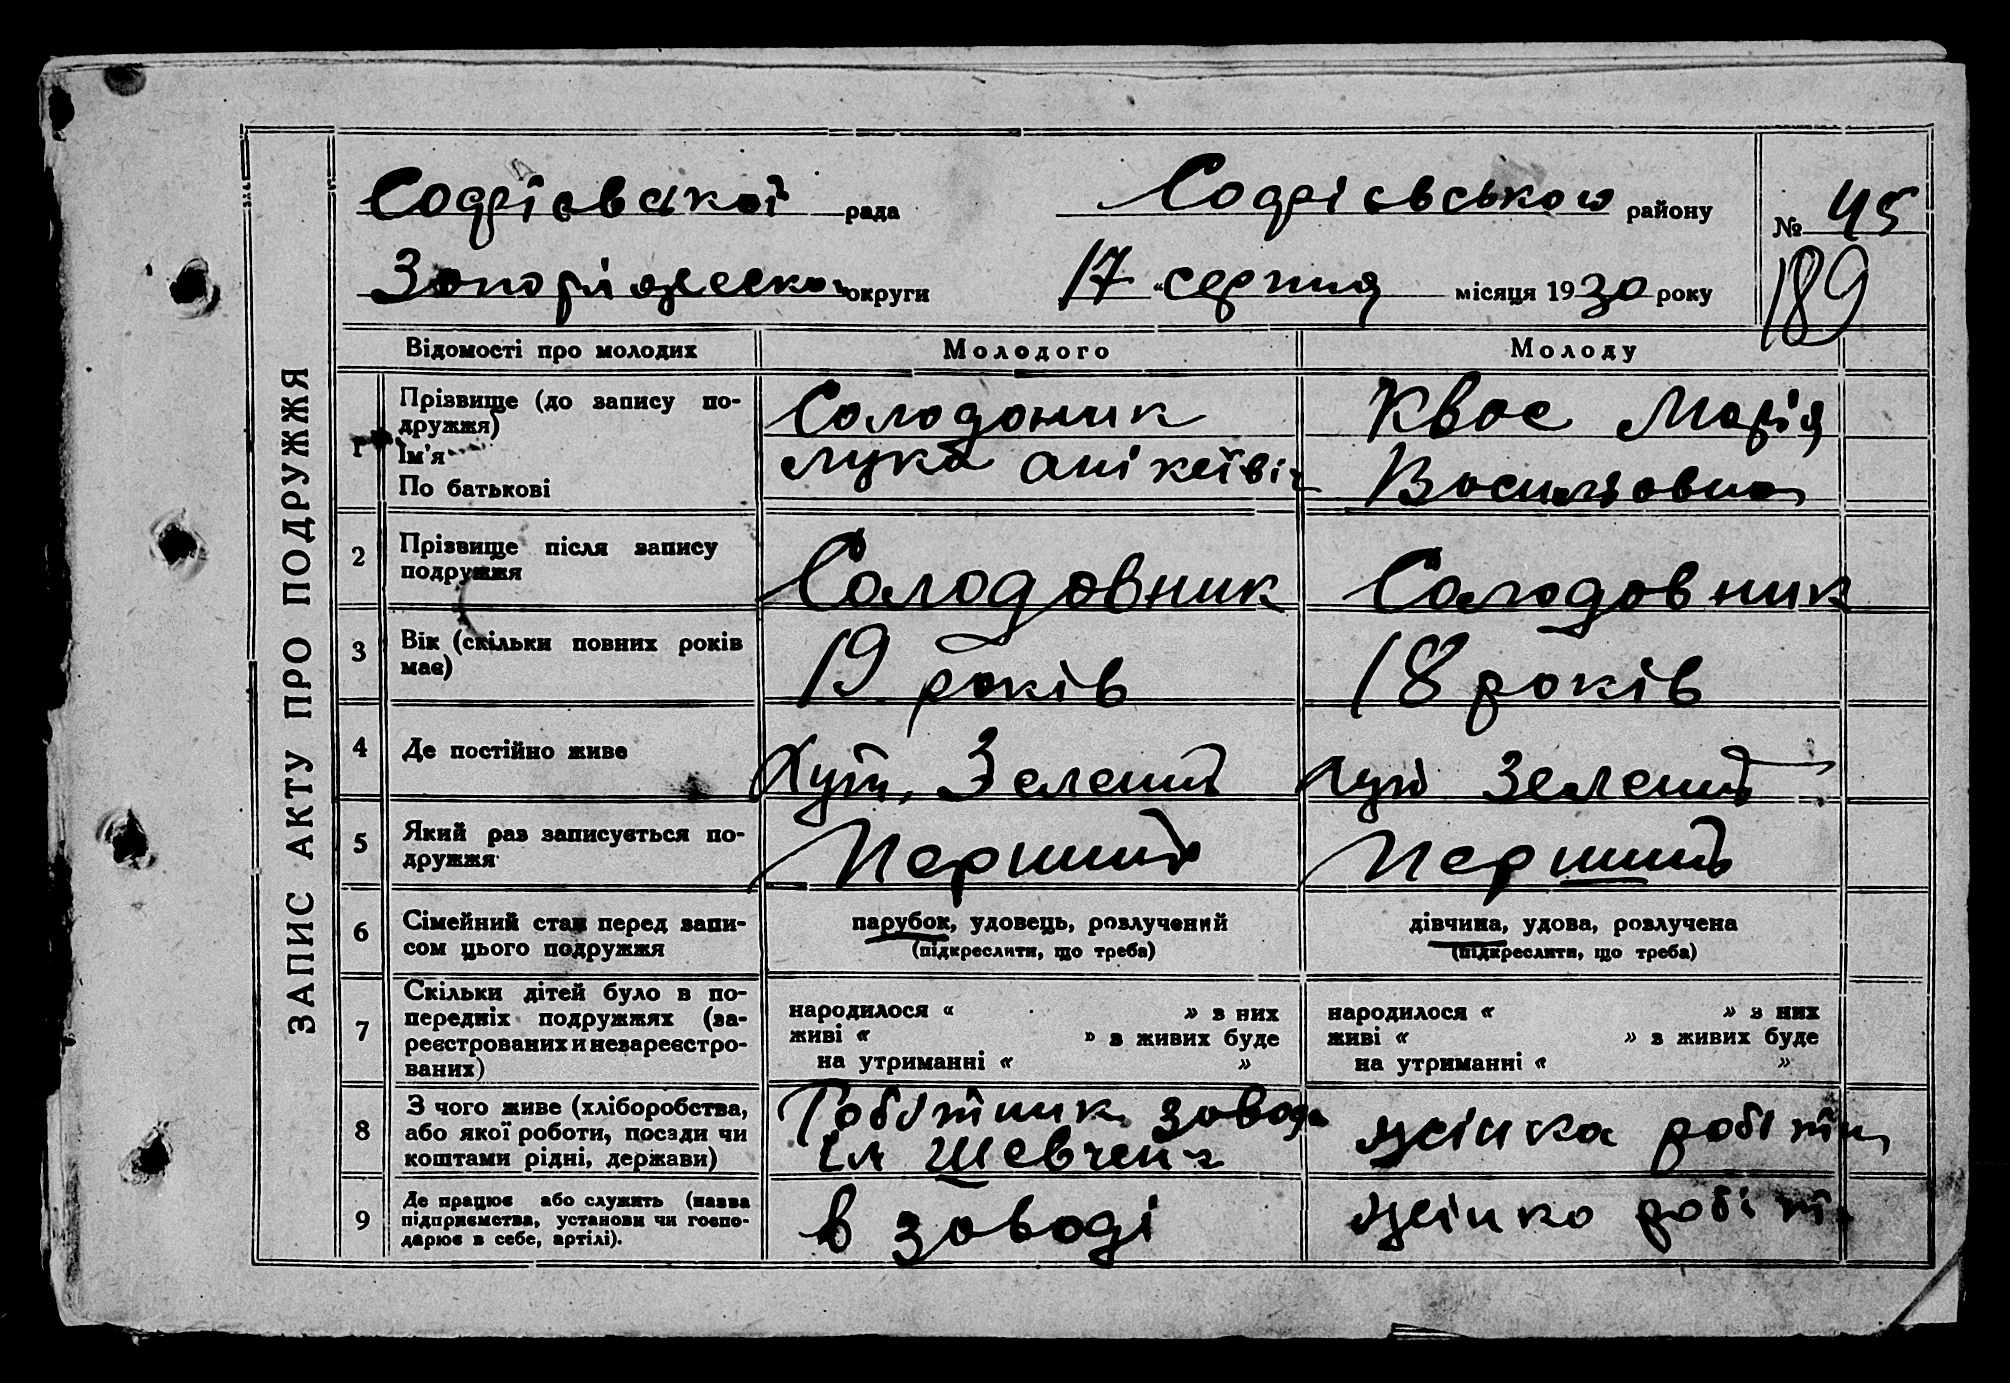 ЗАПИС АКТУ ПРО ПОДРУЖЖЯ
Содрієвської рада Содрієвського району № 45
Запоріжеської округи 17 « серпня місяця 1930 року 189
Відомості про молодих Молодого Молоду
1 Прізвище (до запису по-
дружжя) Солодоник Квас Марія
Ім'я Лука Анікеївіч Васильовна
По батькові
2 Прізвище після запису
подружжя Солодовник Солодовник
3 Вік (скільки повних років
має) 19 років 18 років
4 Де постійно живе Хут. Зелений Хут Зелений
5 Який раз записується по-
дружжя Перший Перший
6 Сімейний стан перед запи-
сом цього подружжя
парубок, удовець, розлучений
(підкреслити, що треба)
дівчина, удова, розлучена
(підкреслити, що треба)
7 Скільки дітей було в по-
передніх подружжях (за-
реєстрованих и незареєстро-
ваних)
народилося « » з них
живі « » з живих буде
на утриманні « »
народилося « » з них
живі « » з живих буде
на утриманні « »
8 З чого живе (хліборобства,
або якої роботи, посади чи
коштами рідні, держави)
Робітник завода
ім Шевченк
жінка робітн
9 Де працює або служить (назва
підприємства, установи чи госпо-
дарює в себе, артілі).
в заводі
жінка робітн